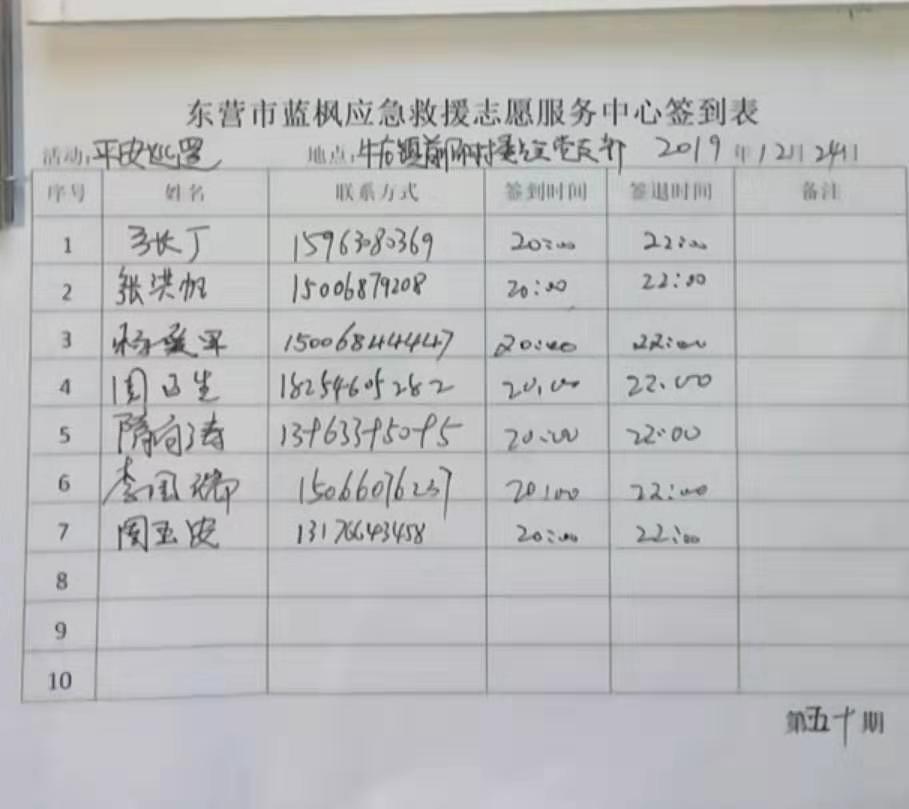 东营市蓝枫应急救援志愿服务中心签到表
活动:平安巡逻 地点:牛庄镇前邵村委会党支部 2019年12月24日
序号 姓名 联系方式 签到时间 签退时间 备注
1 张丁 15963080369 20:00 22:00
2 张洪帆 15006879208 20:00 22:00
3 杨爱军 15006844447 20:00 22:00
4 周正生 18254605282 20:00 22:00
5 隋向涛 13963395095 20:00 22:00
6 李国瑞 15066076237 20:00 22:00
7 周玉安 13176643458 20:00 22:00
8
9
10
第五十期